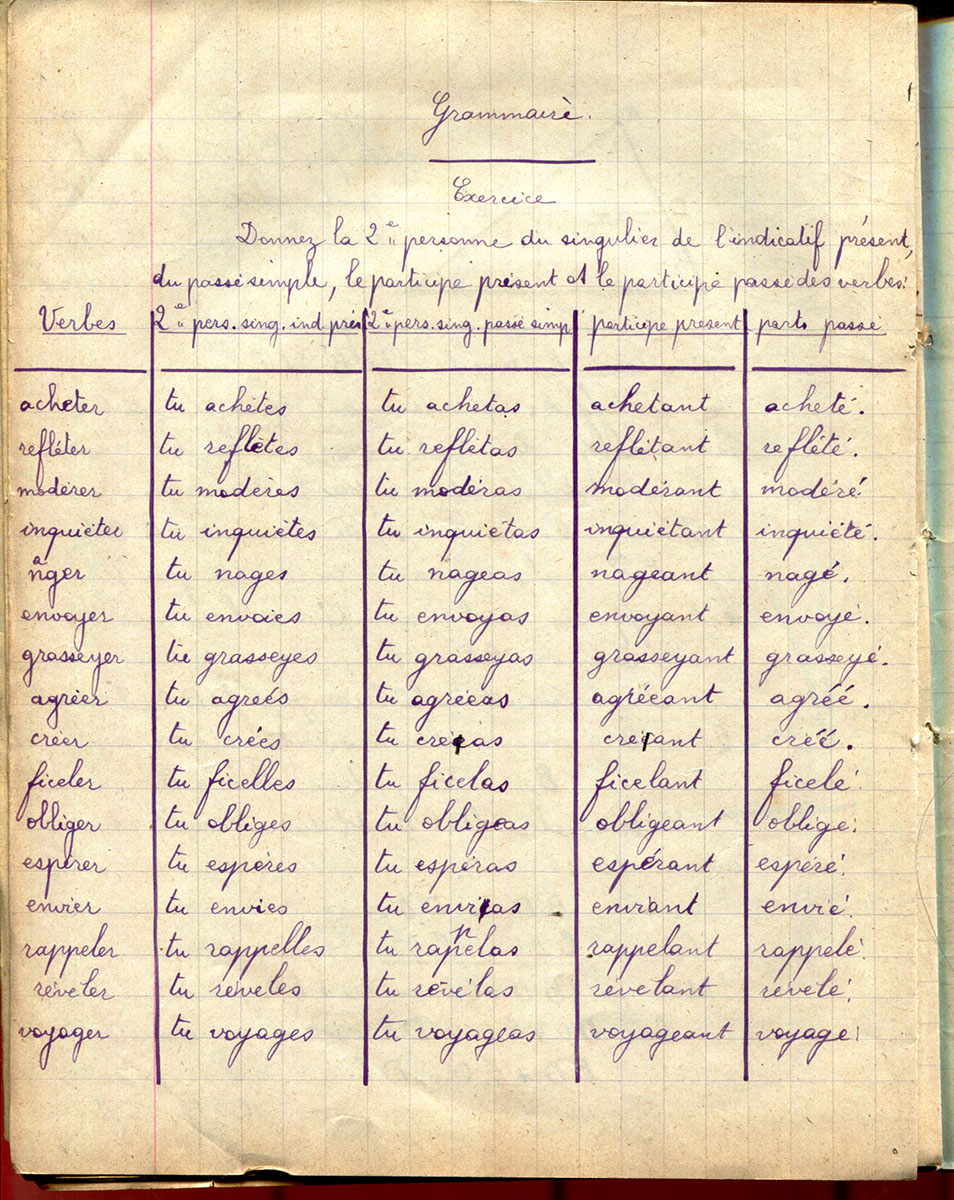 Grammaire.
Exercice
Donnez la 2e personne du singulier de l'indicatif présent,
du passé simple, le participe présent et le participe passé des verbes:
Verbes 2e pers. sing. ind. prés 2e pers. sing. passé simp participe présent part. passé
acheter tu achètes tu achetas achetant acheté.
refléter tu reflètes tu reflétas reflétant reflété.
modérer tu modères tu modéras modérant modéré.
inquiéter tu inquiètes tu inquiétas inquiétant inquiété.
nager tu nages tu nageas nageant nagé.
envoyer tu envoies tu envoyas envoyant envoyé.
grasseyer tu grasseyes tu grasseyas grasseyant grasseyé.
agréer tu agreés tu agréeas agréeant agréé.
créer tu crées tu creas creant créé.
ficeler tu ficelles tu ficelas ficelant ficelé.
obliger tu obliges tu obligeas obligeant obligé.
espérer tu espères tu espéras espérant espéré.
envier tu envies tu envias enviant envié.
rappeler tu rappelles tu rappelas rappelant rappelé.
révéler tu révèles tu révélas révélant révélé.
voyager tu voyages tu voyageas voyageant voyagé.